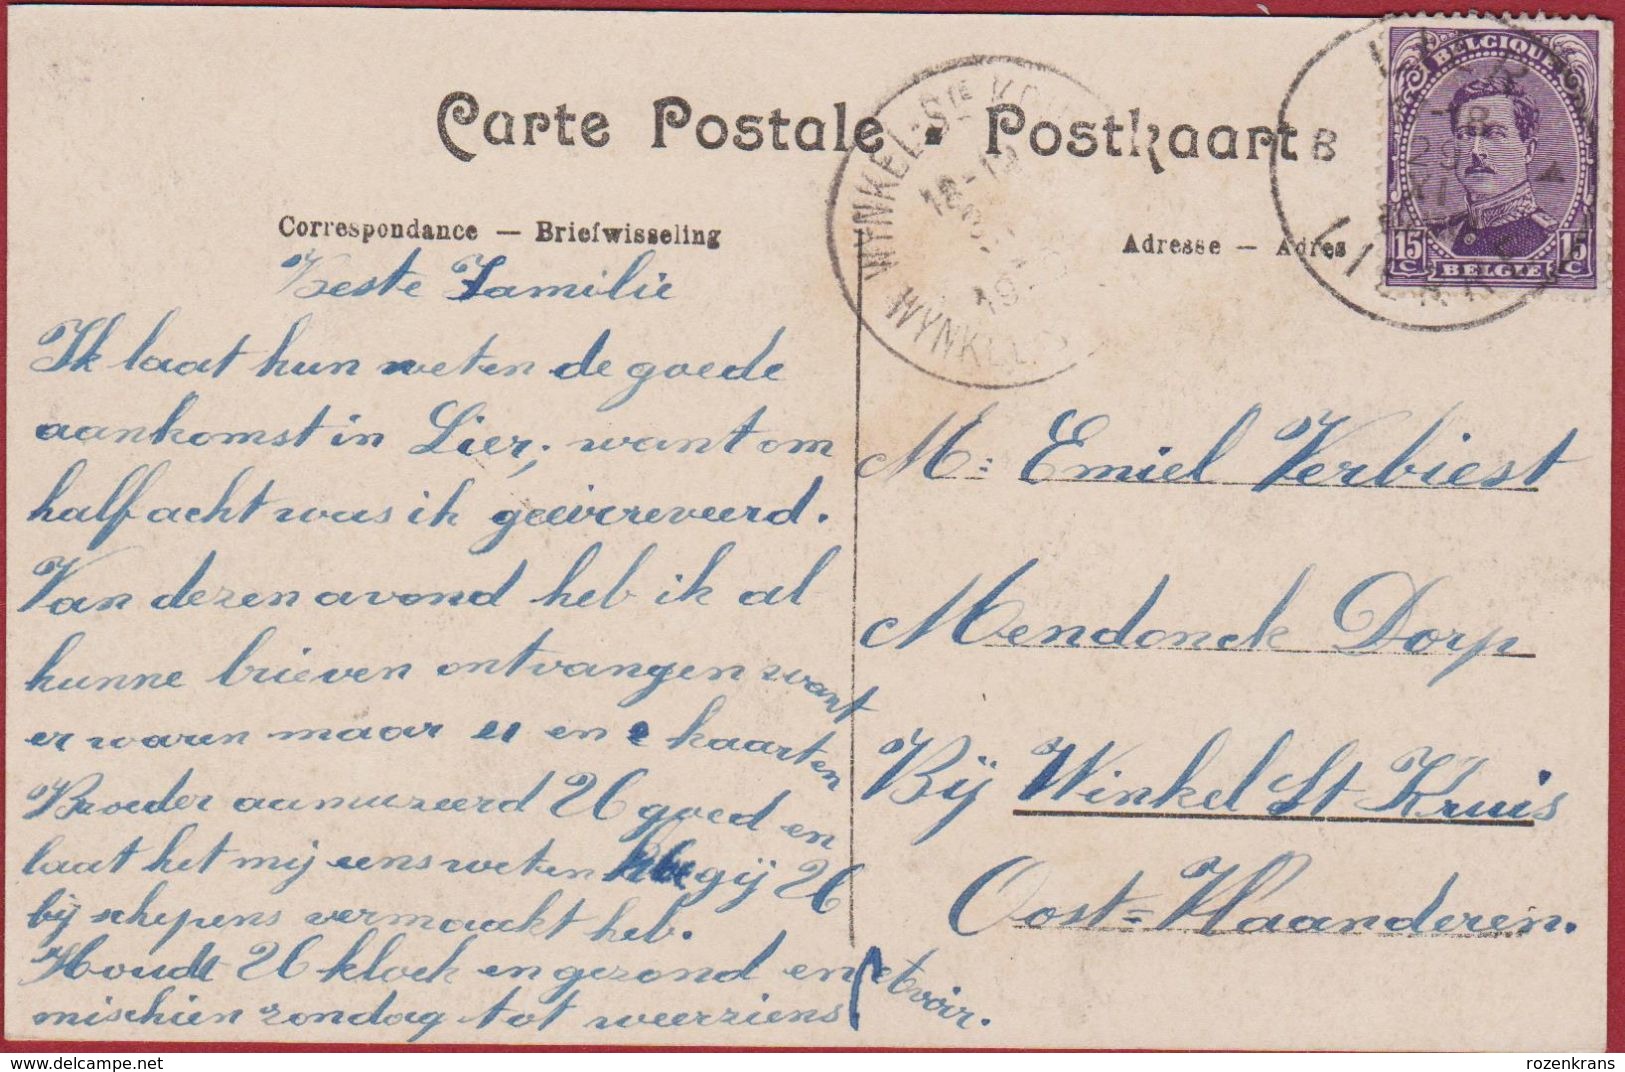 Carte Postale • Postkaart
Correspondance — Briefwisseling
Beste Familie
Ik laat hun weten de goede
aankomst in Lier; want om
half acht was ik geëirreveerd.
Van dezen avond heb ik al
hunne brieven ontvangen want
er waren maar en kaarten
Broeder aamuzeerd U goed en
laat het mij eens weten gij U
bij schepens vermaackt heb.
Houdt U kloek en gezond en
mischien zondag tot weerziens.
Adresse — Adres
M: Emiel Verbiest
Mendonck Dorp
Bij Winkel St Kruis
Oost=Vlaanderen.
BELGIQUE
15 C
BELGIË
15 C
LIER
B
29
XI
WYNKEL-Ste KRUIS
18-19
rozenkrans